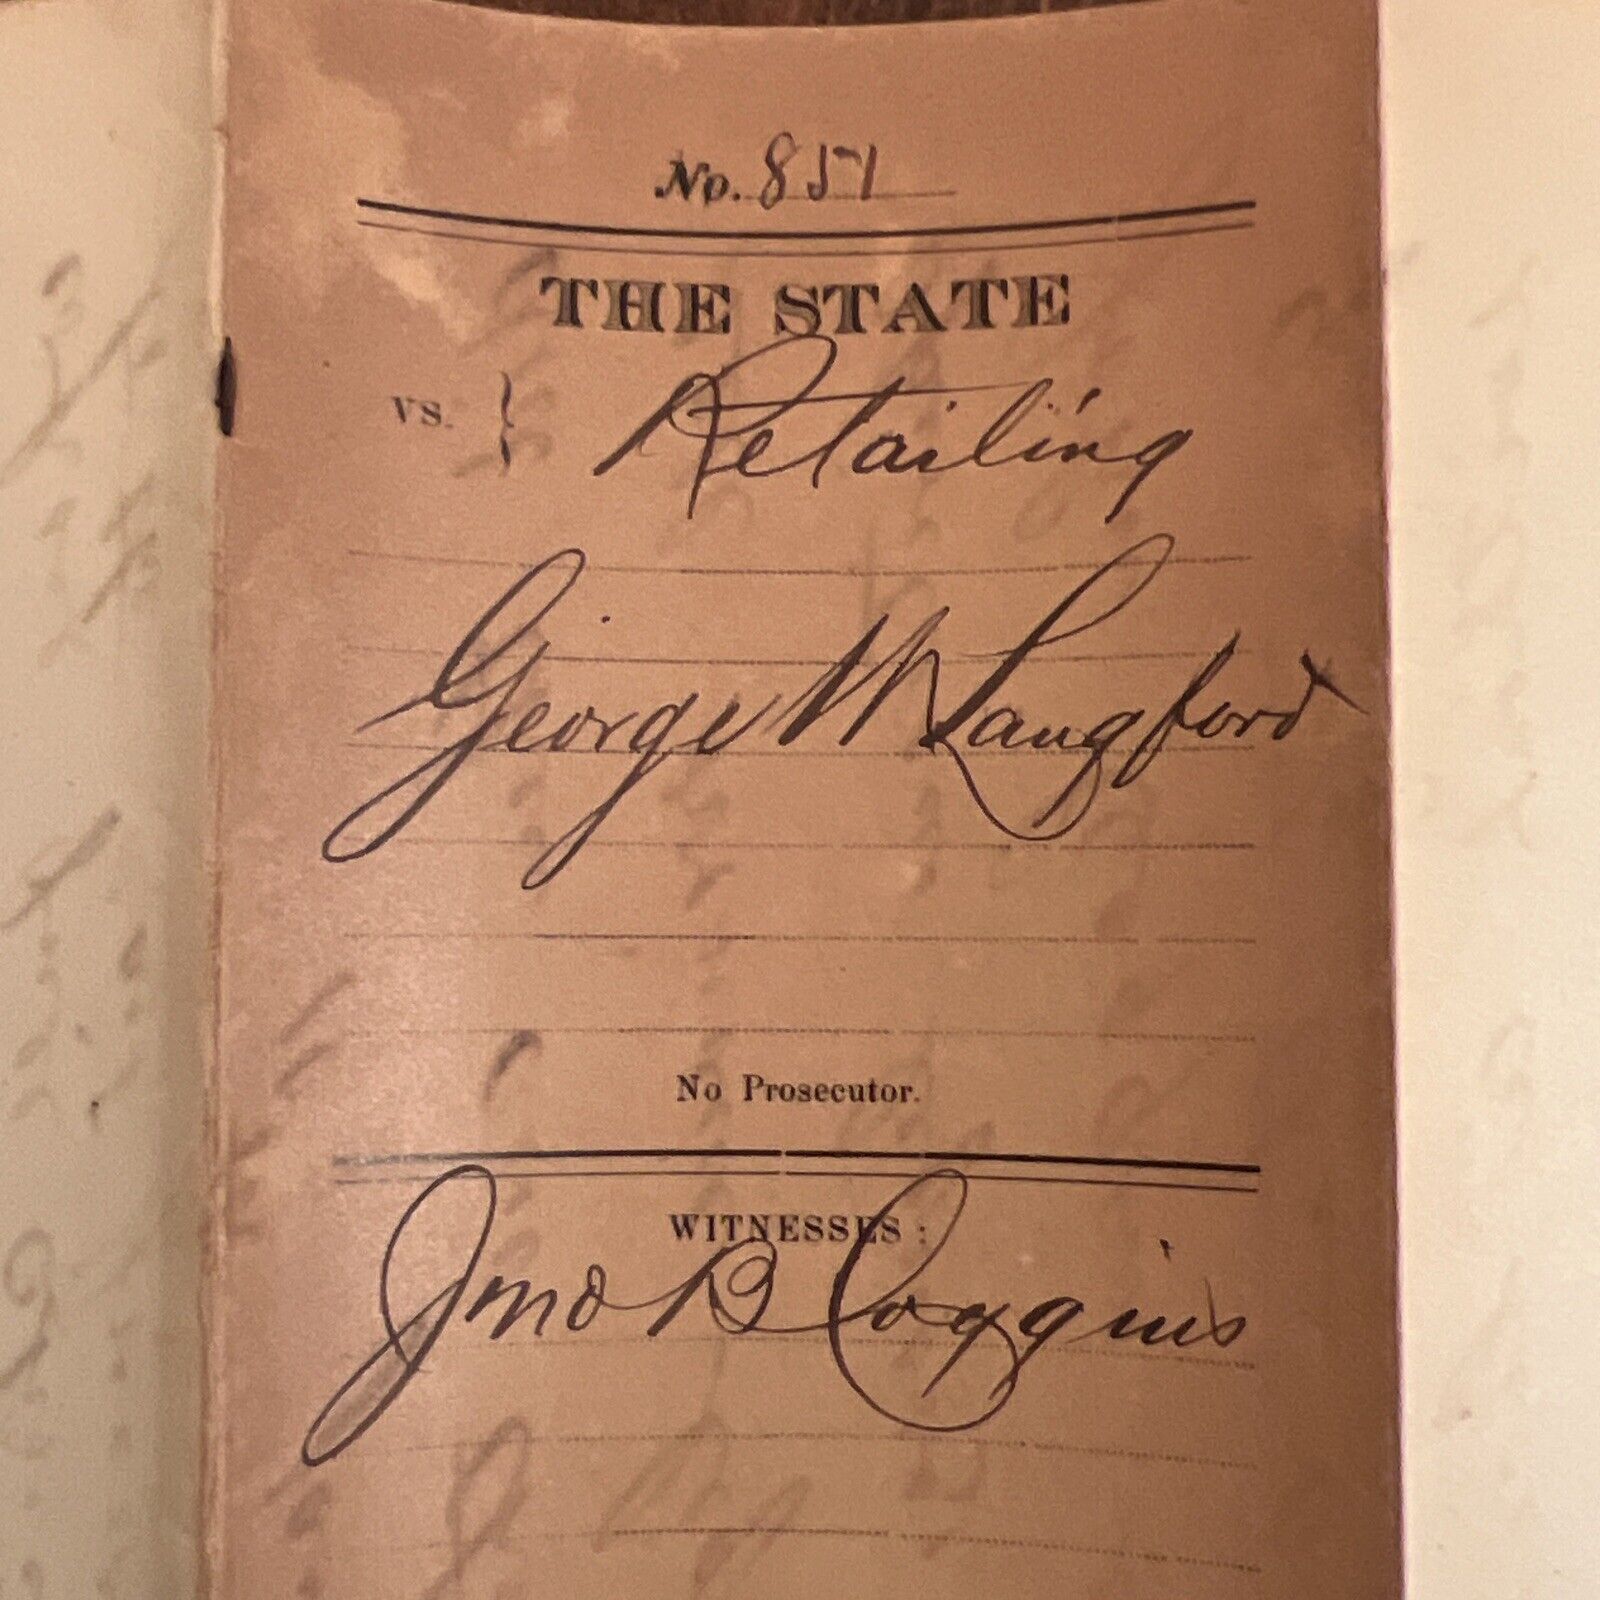 No. 851
THE STATE
vs. } Retailing
George M Langford
No Prosecutor.
WITNESSES:
Jno B Coggins